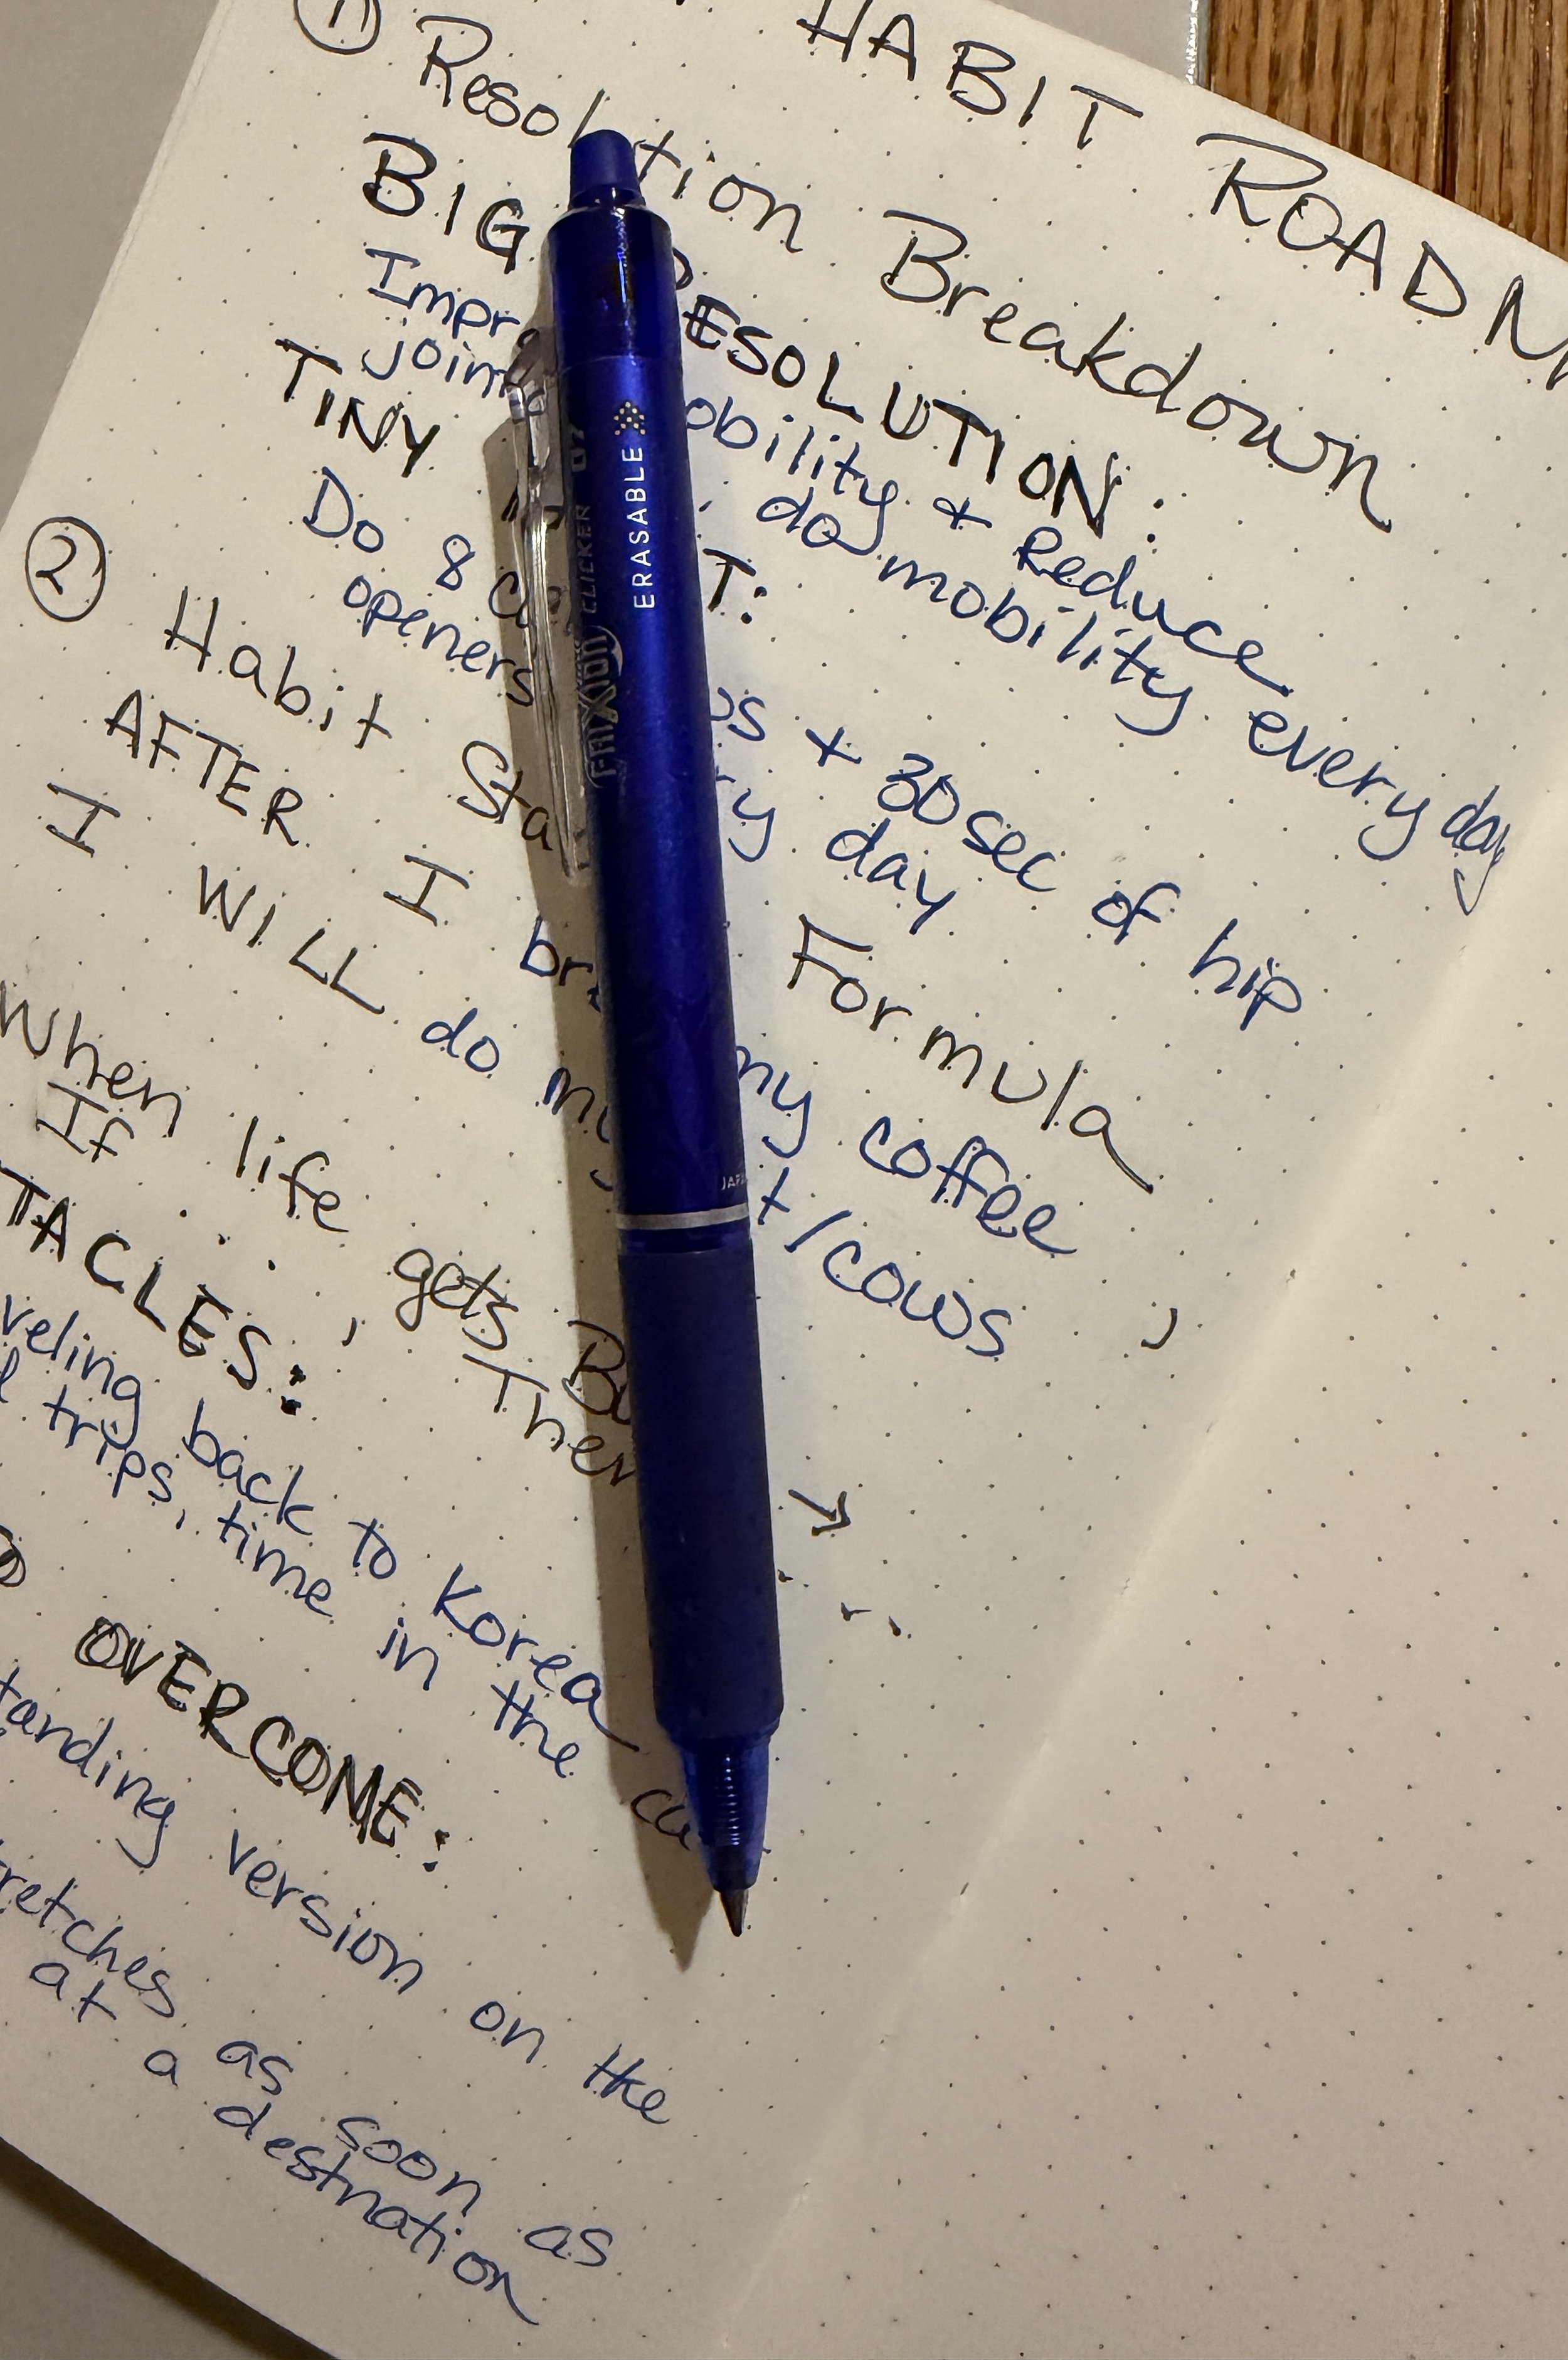 HABIT ROADM
① Resolution Breakdown
BIG RESOLUTION:
Improve mobility + Reduce
joint, do mobility every day
TINY
Do 8 + 30 sec of hip
openers day
② Habit Formula
AFTER I my coffee,
I WILL do my /cows
When life gets
If , Then
TACLES:
veling back to Korea
trips, time in the
OVERCOME:
tanding version on the
retches as soon as
at a destination
FRIXION CLICKER 07
ERASABLE